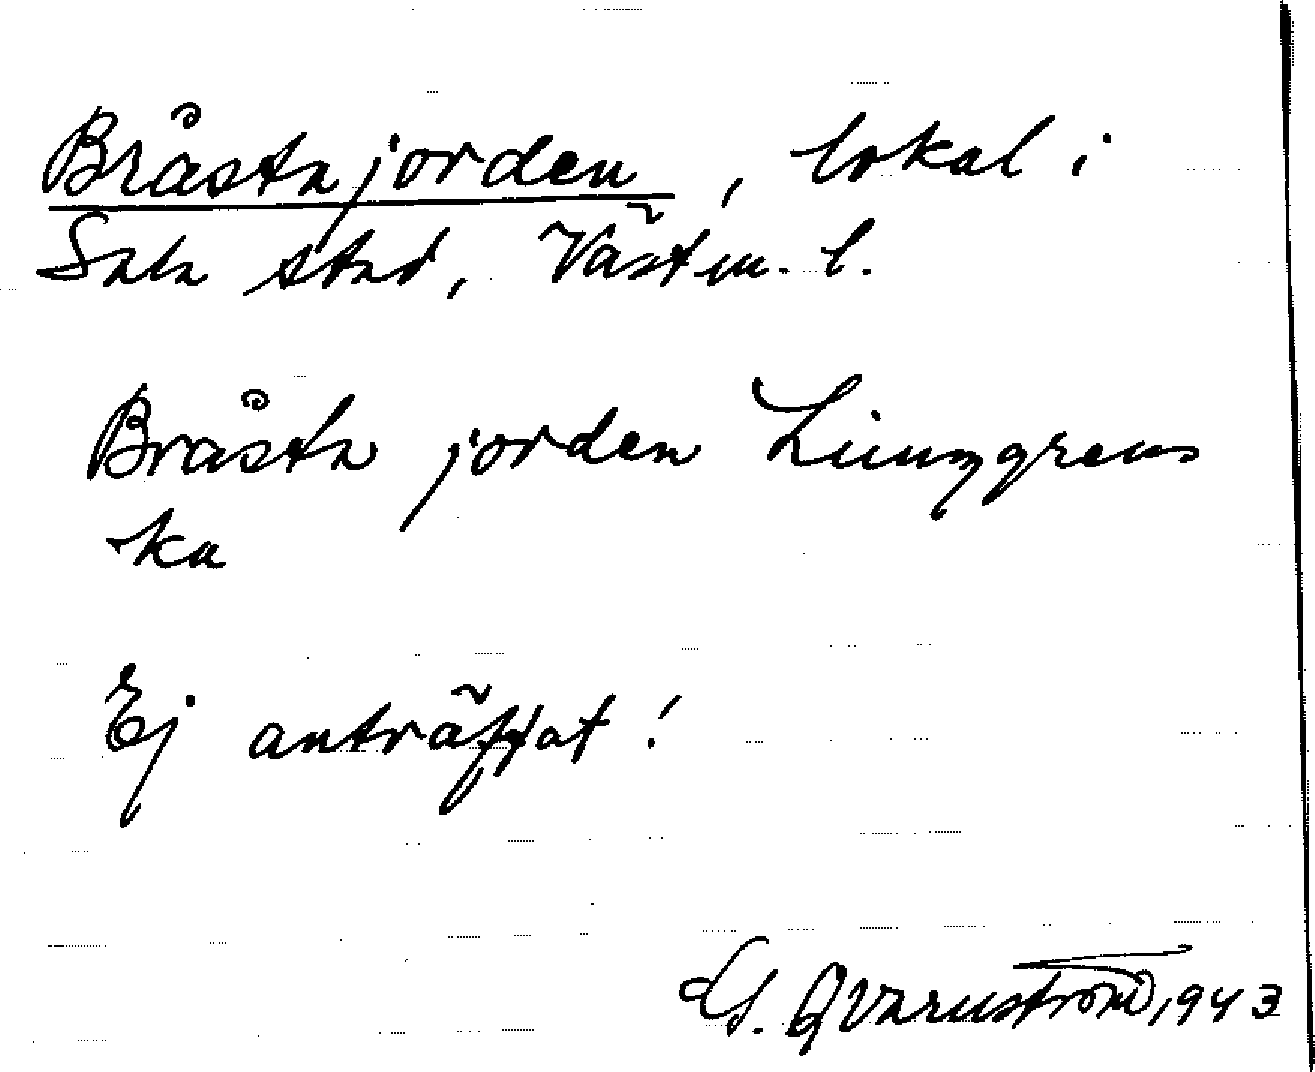 Bråstajorden, lokal i
Sala stad, Västm. l.
Bråsta jorden Ljunggrens
ka
Ej anträffat!
G. Qvarnström, 1943